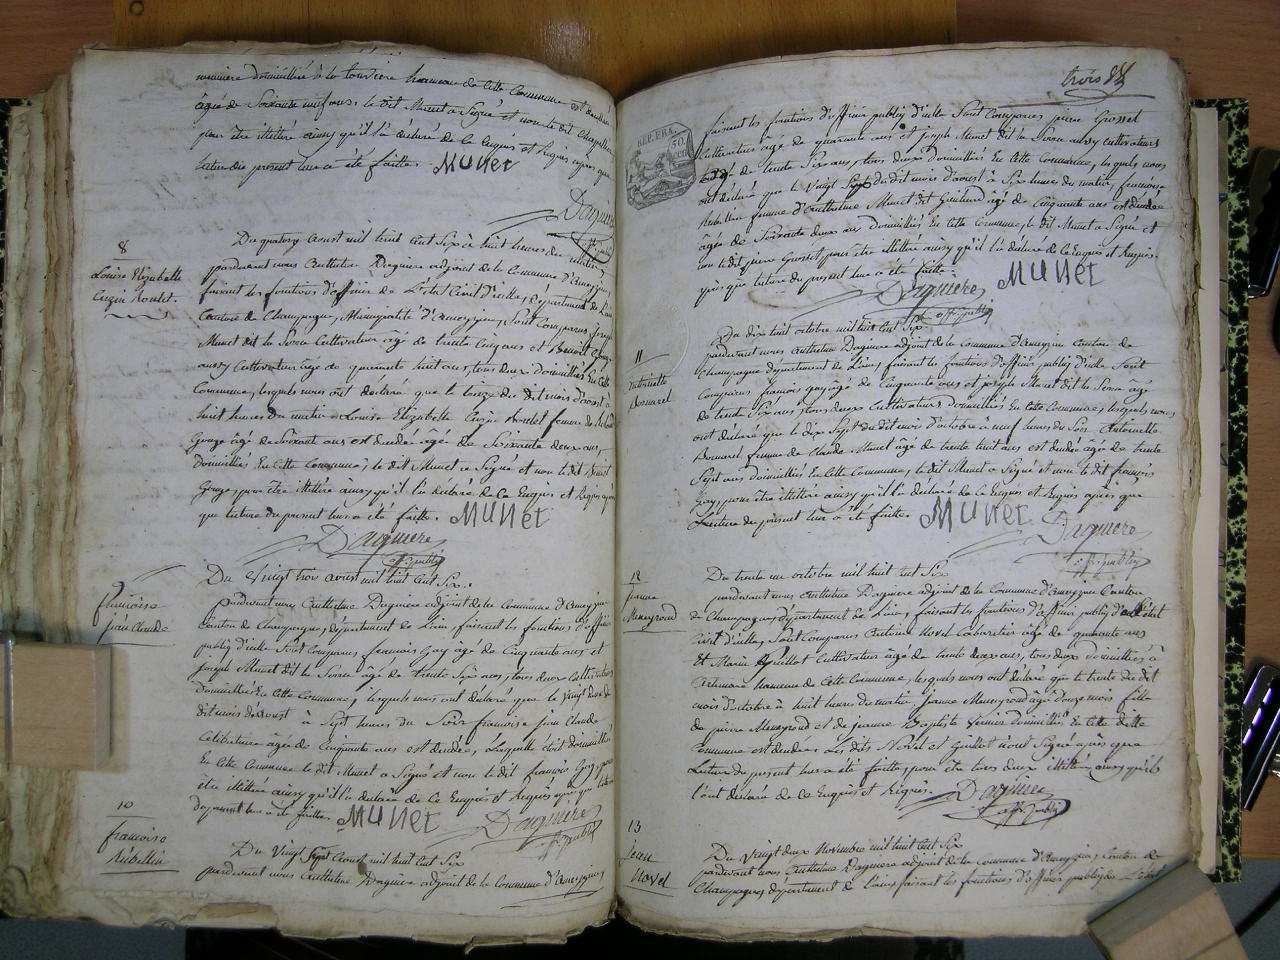 meuniere domicilliée à la Louvière hameau de Cette Commune est decedée
âgée de Soixante neuf ans. le dit Munet a Signé et non le dit Chapelle
pour être illettré ainsy qu'il l'a déclaré de Ce Enquis et Requis apres que
Lecture du present leur a été faitte. MUNET
Daguiere
8
Louise Elizabette
Cuzin Roulet.
Du quatorze aoust mil huit Cent Six à huit heures du matin,
pardevant nous Anthelme Daguiere adjoint de la Commune d'Ameyzieu
faisant les fonctions d'officier de L'etat Civil d'icelle, Departement de Lain
Canton de Champagne, Municipalité d'Ameyzieu, Sont Comparus Joseph
Munet dit la Serra Cultivateur âgé de trente Cinq ans et Benoit
aussy Cultivateur âgé de quarante huit ans, tous deux Domicilliés En Cette
Commune, lesquels nous ont déclaré que le treize du dit mois d'aoust à
huit heures du matin Louise Elizabette Cuzin Roulet femme de
Gouge âgé de Soixante ans est decedée âgée de Soixante deux ans,
Domicilliée En Cette Commune; le dit Munet a Signé et non le dit Benoit
Gouge, pour être illettré ainsy qu'il l'a declaré de Ce Enquis et Requis apres
que lecture du present leur a été faitte. MUNET
Daguiere
off. public
françoise
jean Claude
Du vingt trois aoust mil huit Cent Six.
pardevant nous Anthelme Daguiere adjoint de la Commune d'Ameyzieu
Canton de Champagne, département de Lain, faisant les fonctions d'officier
public d'icelle Sont Comparus francois Gay âgé de Cinquante ans et
Joseph Munet dit la Serra âgé de trente Six ans, tous deux Cultivateurs
Domicilliés En Cette Commune, lesquels nous ont déclaré que le vingt deux du
dit mois d'Aoust à Sept heures du Soir francoise jean Claude
Celibataire âgée de Cinquante ans est decedée, Laquelle étoit domicilliée
En Cette Commune le dit Munet a Signé et non le dit francois Gay, pour
être illettré ainsy qu'il l'a declaré de Ce Enquis et Requis apres que lecture
du present leur a été faitte. MUNET Daguiere
off. public
10
francoise
Rubellin
Du Vingt Sept Aoust mil huit Cent Six
pardevant nous Anthelme Daguiere adjoint de la Commune d'Ameyzieu
trois
REP. FRA.
50.
cent
faisant les fonctions d'officier public d'icelle Sont Comparus pierre Grosset
Cultivateur âgé de quarante ans et joseph Munet dit la Serra aussy Cultivateur
âgé de trente Six ans, tous deux Domicilliés En Cette Commune, lesquels nous
ont déclaré que le Vingt Sept du dit mois d'aoust à Six heures du matin, francoise
Rubellin femme d'Anthelme Munet dit âgé de Cinquante ans est decedée
âgée de Soixante deux ans Domicilliée En Cette Commune, le dit Munet a Signé et
non le dit pierre Grosset pour être illettré ainsy qu'il l'a declaré de Ce Enquis et Requis.
apres que lecture du present leur a été faitte. MUNET
Daguiere
off. public
11
Antoinette
Bornarel
Du dix huit octobre mil huit Cent Six
pardevant nous Anthelme Daguiere adjoint de la Commune d'Ameyzieu Canton de
Champagne département de Lain, faisant les fonctions d'officier public d'icelle Sont
Comparus francois gay âgé de Cinquante ans et joseph Munet dit la Serra âgé
de trente Six ans, tous deux Cultivateurs Domicilliés En Cette Commune, lesquels nous
ont déclaré que le dix Sept du dit mois d'octobre à neuf heures du Soir Antoinette
Bornarel femme de Claude Munet âgé de trente huit ans est decedée âgée de trente
Sept ans Domicilliée En Cette Commune, le dit Munet a Signé et non le dit francois
Gay, pour être illettré ainsy qu'il l'a declaré de Ce Enquis et Requis apres que
Lecture du present leur a été faitte. MUNET Daguiere
off. public
12
jeanne
Mongrond
Du trente un octobre mil huit Cent Six
pardevant nous Anthelme Daguiere adjoint de la Commune d'Ameyzieu Canton
de Champagne, département de Lain, faisant les fonctions d'officier public de l'état
Civil d'icelle, Sont Comparus Antoine Novel Cabaretier âgé de quarante ans
Et Marin Guillot Cultivateur âgé de trente deux ans, tous deux Domicilliés à
Artemare hameau de Cette Commune, lesquels nous ont déclaré que le trente du dit
mois d'octobre à huit heures du matin jeanne Mongrond âgée Douze mois fille
de pierre Mongrond et de jeanne Baptiste fermier Domicilliés En Cette dette
Commune est decedée. Les dits Novel et Guillot n'ont Signé apres que
Lecture du present leur a été faitte, pour être tous deux illettrés ainsy qu'ils
l'ont déclaré de Ce Enquis et Requis. Daguiere
off. public
13
jean
Novel
Du Vingt deux Novembre mil huit Cent Six
pardevant nous Anthelme Daguiere adjoint de la Commune d'Ameyzieu, Canton de
Champagne, département de Lain faisant les fonctions d'officier public de L'état